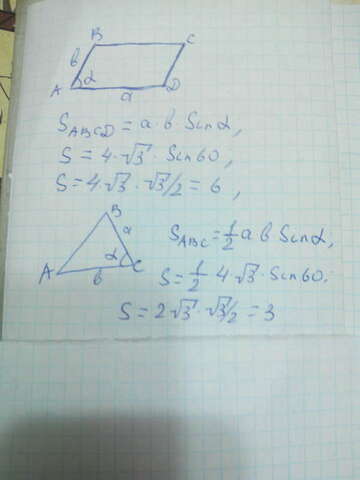 B C
в
A α D
a
S_ABCD = a · в · Sinα,
S = 4 · √3 · Sin60,
S = 4 · √3 · √3/2 = 6,
B
a
α
A C
в
S_ABC = 1/2 a в Sinα,
S = 1/2 4 √3 · Sin60,
S = 2√3 · √3/2 = 3